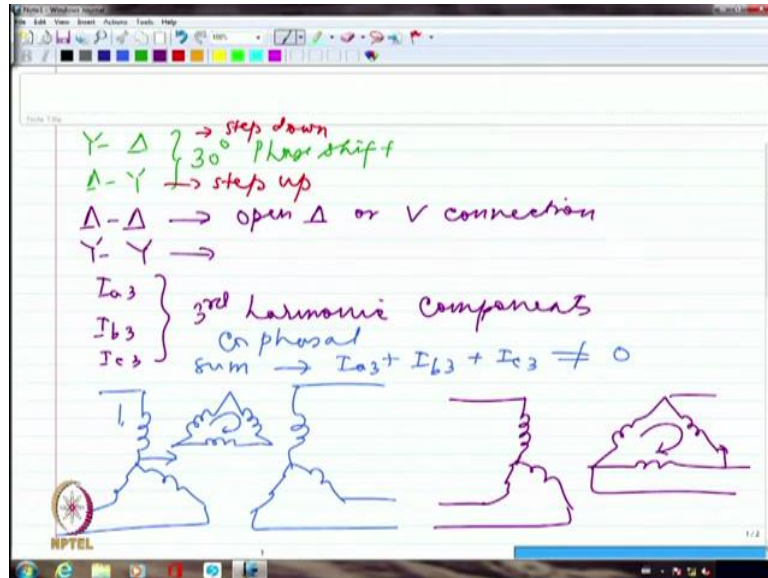 Note1 - Windows Journal
File Edit View Insert Actions Tools Help
100%
B I
Note Title
Y - Δ } → step down
30° Phase shift
Δ - Y → step up
Δ - Δ → open Δ or V connection
Y - Y →
Ia3
Ib3
Ic3 } 3rd harmonic components
Co phasal
sum → Ia3 + Ib3 + Ic3 ≠ 0
NPTEL
1/2
1